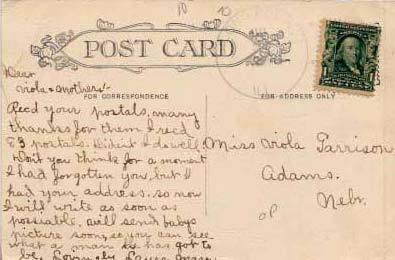 POST CARD
Dear
Viola & Mother:-
FOR CORRESPONDENCE
Recd your postals, many
thanks for them I recd
83 postals. Didn't I do well.
Don't you think for a moment
I had forgotten you, but I
had your address. so now
I will write as soon as
possiable. will send babys
picture soon, so you can see
what a man he has got to
be. Lovingly
FOR ADDRESS ONLY
Miss Viola Garrison
Adams.
Nebr.